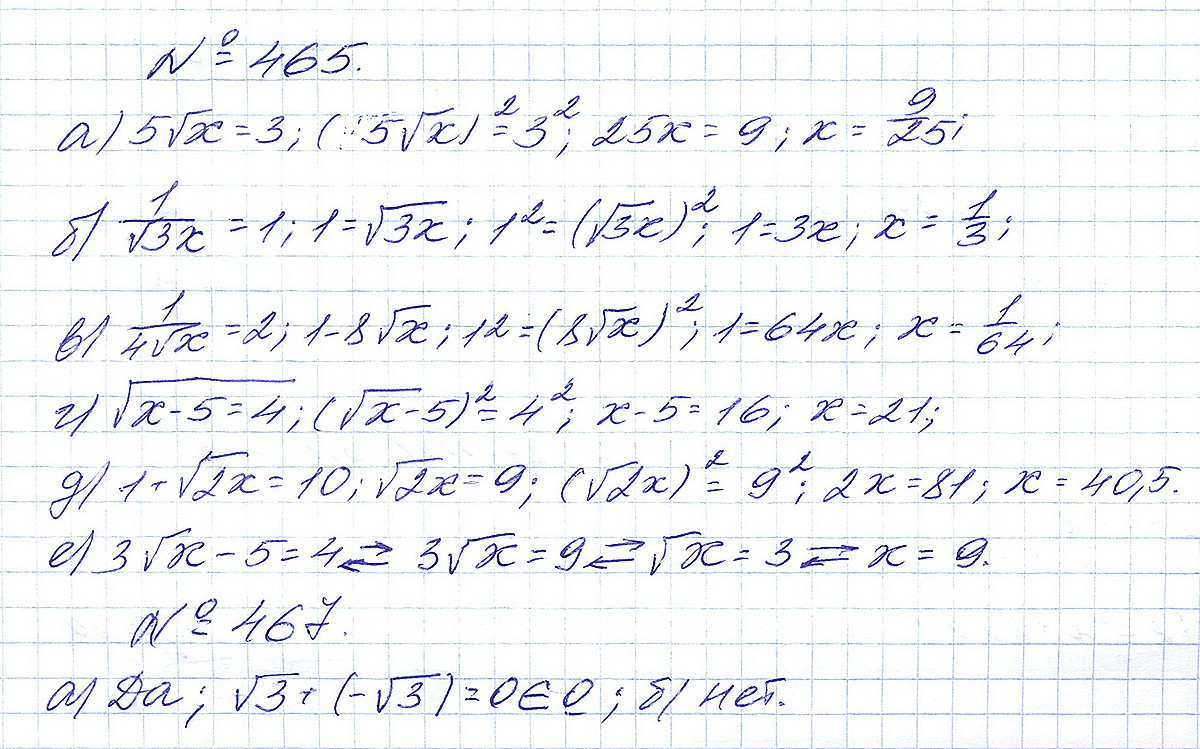 № 465.
а) 5√x = 3; (5√x)² = 3²; 25x = 9; x = 9/25;
б) 1/√3x = 1; 1 = √3x; 1² = (√3x)²; 1 = 3x; x = 1/3;
в) 1/4√x = 2; 1-8√x; 12 = (8√x)²; 1 = 64x; x = 1/64;
г) √x-5=4; (√x-5)² = 4²; x-5 = 16; x = 21;
д) 1+√2x = 10; √2x = 9; (√2x)² = 9²; 2x = 81; x = 40,5.
е) 3√x - 5 = 4 ⇄ 3√x = 9 ⇄ √x = 3 ⇄ x = 9.
№ 467.
а) Да; √3 + (-√3) = 0 ∈ Q; б) нет.